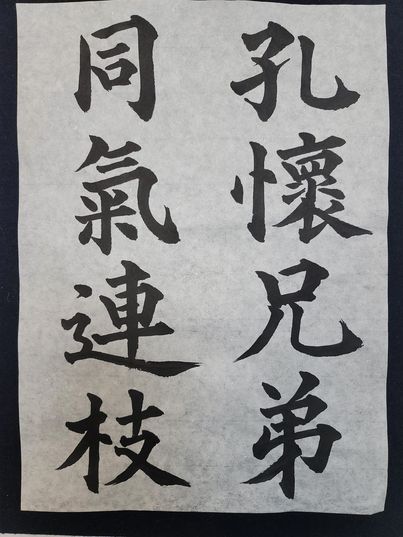 孔懷兄弟
同氣連枝